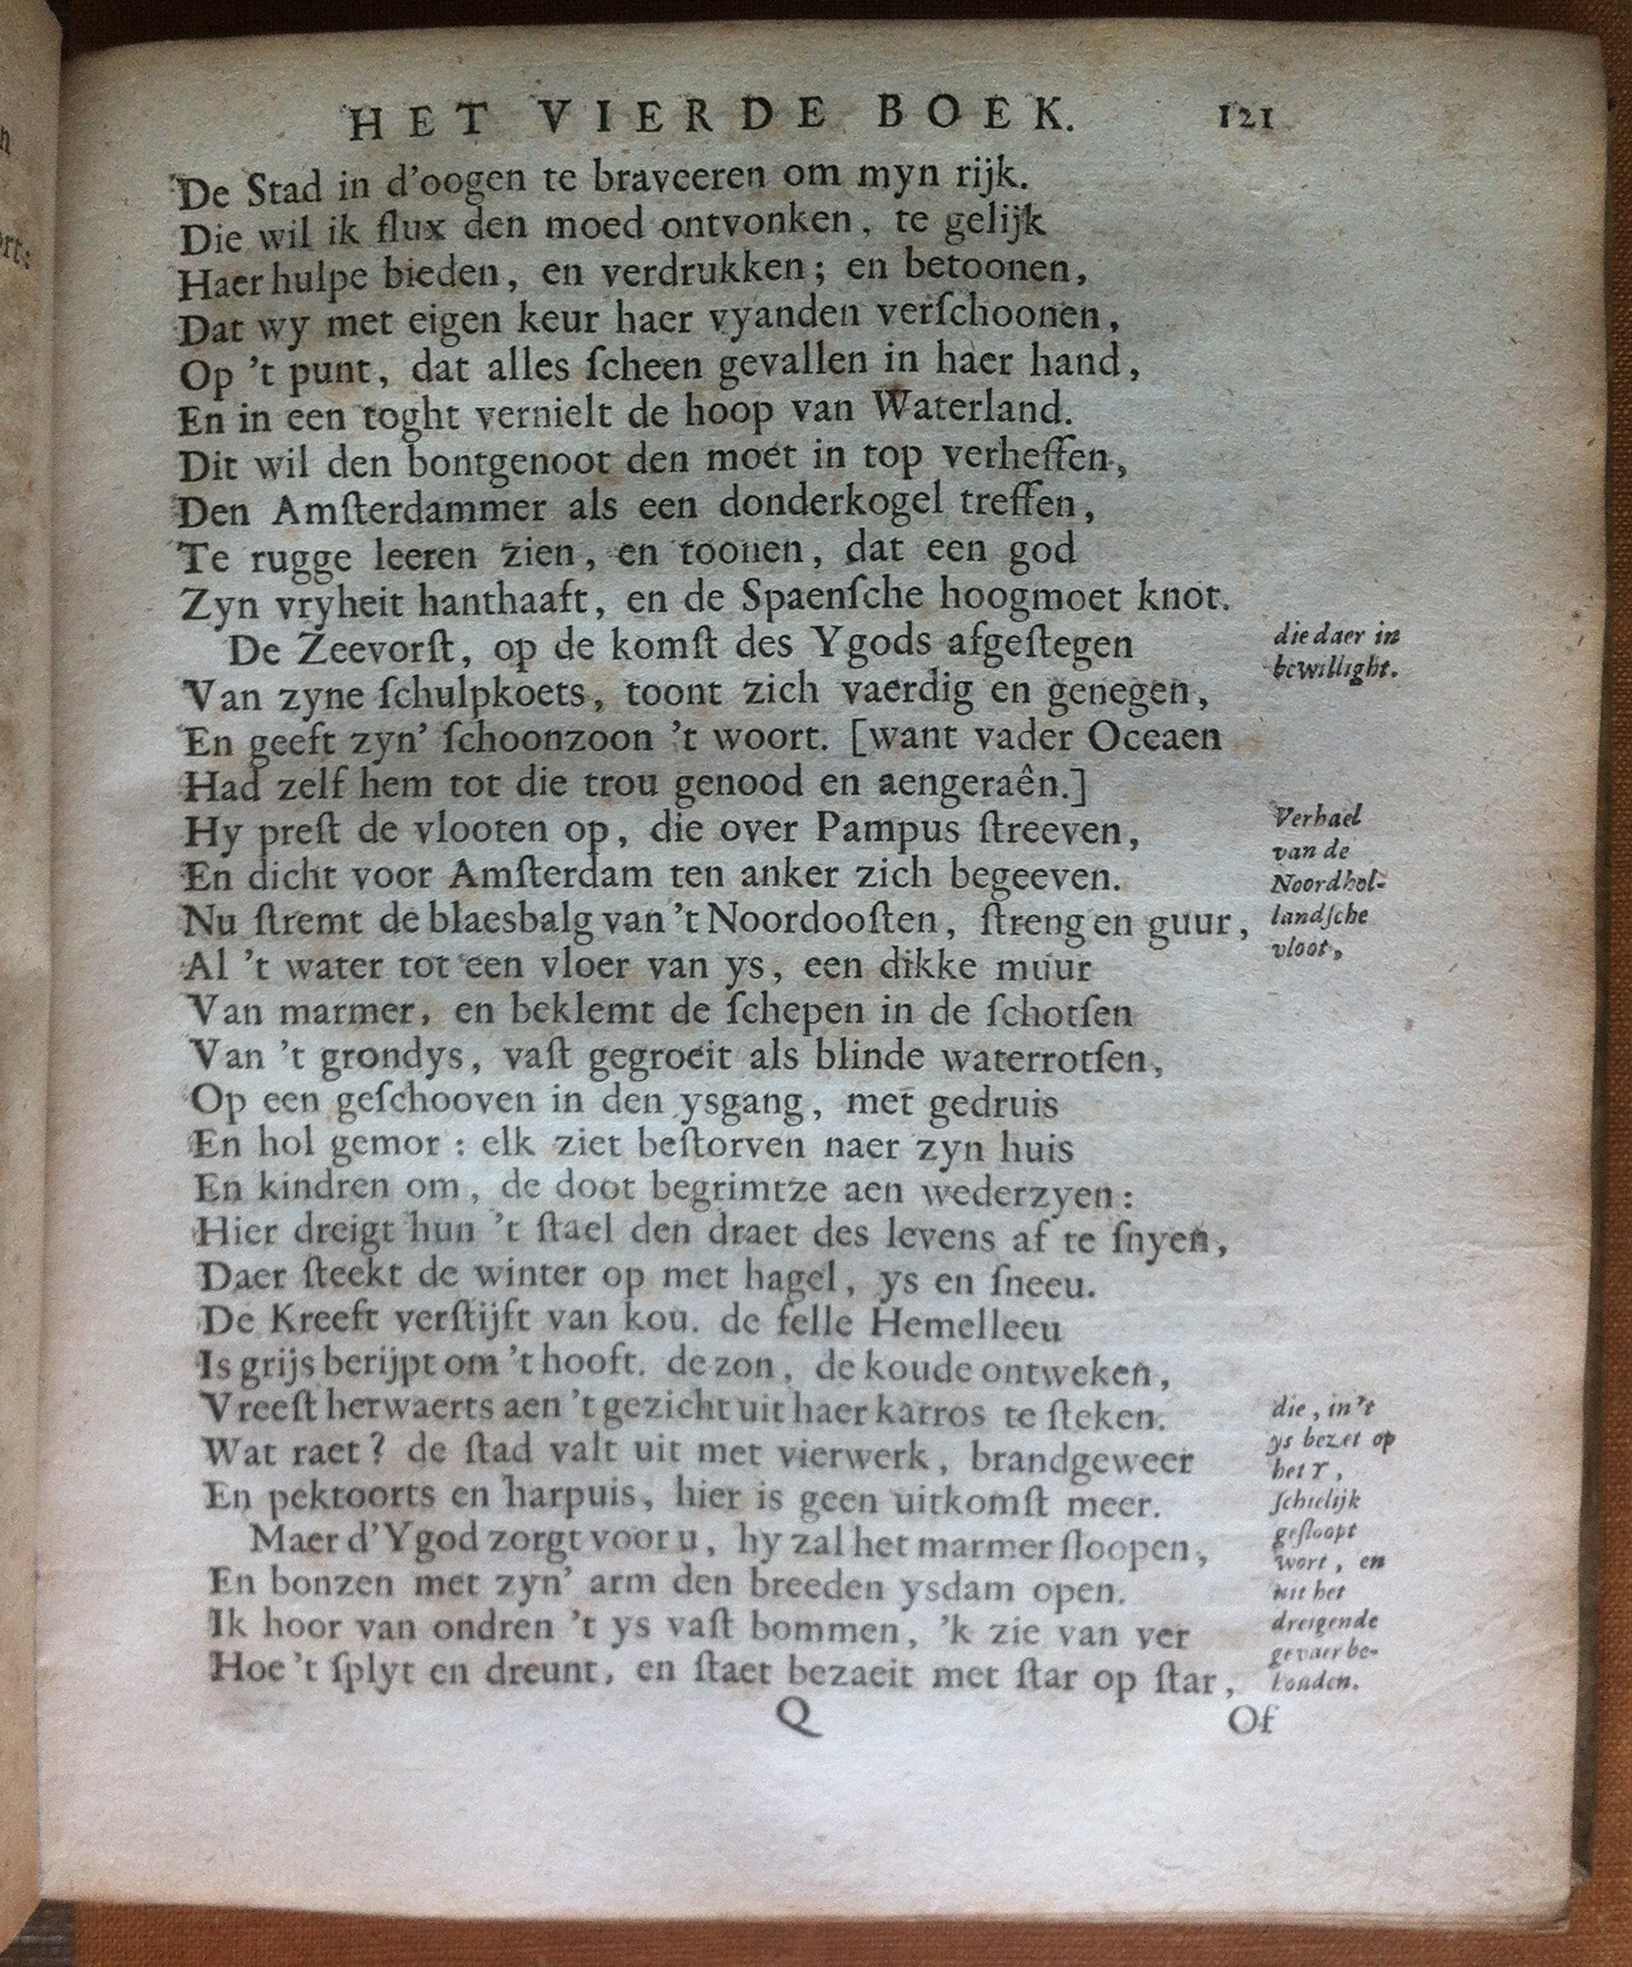 HET VIERDE BOEK. 121
De Stad in d'oogen te braveeren om myn rijk.
Die wil ik flux den moed ontvonken, te gelijk
Haer hulpe bieden, en verdrukken; en betoonen,
Dat wy met eigen keur haer vyanden verſchoonen,
Op 't punt, dat alles ſcheen gevallen in haer hand,
En in een toght vernielt de hoop van Waterland.
Dit wil den bontgenoot den moet in top verheffen,
Den Amſterdammer als een donderkogel treffen,
Te rugge leeren zien, en toonen, dat een god
Zyn vryheit hanthaaft, en de Spaenſche hoogmoet knot.
De Zeevorſt, op de komſt des Ygods afgeſtegen
Van zyne ſchulpkoets, toont zich vaerdig en genegen,
En geeft zyn' ſchoonzoon 't woort. [want vader Oceaen
Had zelf hem tot die trou genood en aengeraên.]
Hy preſt de vlooten op, die over Pampus ſtreeven,
En dicht voor Amſterdam ten anker zich begeeven.
Nu ſtremt de blaesbalg van 't Noordooſten, ſtreng en guur,
Al 't water tot een vloer van ys, een dikke muur
Van marmer, en beklemt de ſchepen in de ſchotſen
Van 't grondys, vaſt gegroeit als blinde waterrotſen,
Op een geſchooven in den ysgang, met gedruis
En hol gemor: elk ziet beſtorven naer zyn huis
En kindren om, de doot begrimtze aen wederzyen:
Hier dreigt hun 't ſtael den draet des levens af te ſnyen,
Daer ſteekt de winter op met hagel, ys en ſneeu.
De Kreeft verſtijft van kou. de felle Hemelleeu
Is grijs berijpt om 't hooft. de zon, de koude ontweken,
Vreeſt herwaerts aen 't gezicht uit haer karros te ſteken.
Wat raet? de ſtad valt uit met vierwerk, brandgeweer
En pektoorts en harpuis, hier is geen uitkomſt meer.
Maer d'Ygod zorgt voor u, hy zal het marmer ſloopen,
En bonzen met zyn' arm den breeden ysdam open.
Ik hoor van ondren 't ys vaſt bommen, 'k zie van ver
Hoe 't ſplyt en dreunt, en ſtaet bezaeit met ſtar op ſtar,
Q Of
die daer in
bewillight.
Verhael
van de
Noordhol-
landſche
vloot,
die, in 't
ys bezet op
het Y,
ſchielijk
geſloopt
wort, en
uit het
dreigende
gevaer be-
houden.